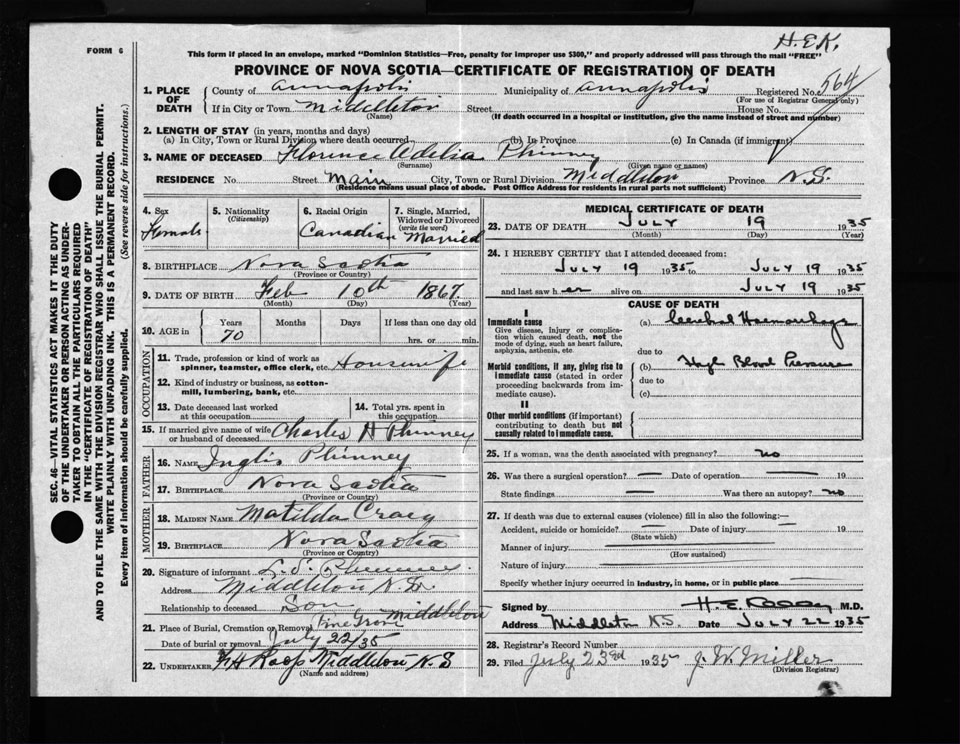 H.E.K.
FORM 6
This form if placed in an envelope, marked "Dominion Statistics—Free, penalty for improper use $300," and properly addressed will pass through the mail "FREE"
PROVINCE OF NOVA SCOTIA—CERTIFICATE OF REGISTRATION OF DEATH
1. PLACE OF DEATH
County of Annapolis Municipality of Annapolis Registered No. 564
(For use of Registrar General only)
If in City or Town Middleton Street House No.
(Name) (If death occurred in a hospital or institution, give the name instead of street and number)
2. LENGTH OF STAY (in years, months and days)
(a) In City, Town or Rural Division where death occurred (b) In Province (c) In Canada (if immigrant)
3. NAME OF DECEASED Florence Adelia Phinney
(Surname) (Given name or names)
RESIDENCE No. Street Main City, Town or Rural Division Middleton Province N.S.
(Residence means usual place of abode. Post Office Address for residents in rural parts not sufficient)
4. Sex
Female
5. Nationality
(Citizenship)
6. Racial Origin
Canadian
7. Single, Married, Widowed or Divorced
(write the word)
Married
8. BIRTHPLACE Nova Scotia
(Province or Country)
9. DATE OF BIRTH Feb 10th 1867
(Month) (Day) (Year)
10. AGE in
Years Months Days If less than one day old
70 hrs. or min.
OCCUPATION
11. Trade, profession or kind of work as
spinner, teamster, office clerk, etc. Housewife
12. Kind of industry or business, as cotton-
mill, lumbering, bank, etc.
13. Date deceased last worked
at this occupation
14. Total yrs. spent in
this occupation
15. If married give name of wife
or husband of deceased Charles H Phinney
FATHER
16. NAME Inglis Phinney
17. BIRTHPLACE Nova Scotia
(Province or Country)
MOTHER
18. MAIDEN NAME Matilda Craig
19. BIRTHPLACE Nova Scotia
(Province or Country)
20. Signature of informant Phinney
Address Middleton N.S.
Relationship to deceased Son
21. Place of Burial, Cremation or Removal Pine Grove Middleton
Date of burial or removal July 22/35
22. UNDERTAKER F H Roop Middleton N.S
(Name and address)
MEDICAL CERTIFICATE OF DEATH
23. DATE OF DEATH July 19 1935
(Month) (Day) (Year)
24. I HEREBY CERTIFY that I attended deceased from:
July 19 1935 to July 19 1935
and last saw her alive on July 19 1935
CAUSE OF DEATH
I
Immediate cause
Give disease, injury or complication which caused death, not the mode of dying, such as heart failure, asphyxia, asthenia, etc.
(a) Cerebral Haemorrhage
due to
Morbid conditions, if any, giving rise to immediate cause (stated in order proceeding backwards from immediate cause).
(b) High Blood Pressure
due to
(c)
II
Other morbid conditions (if important) contributing to death but not causally related to immediate cause.
25. If a woman, was the death associated with pregnancy? no
26. Was there a surgical operation? — Date of operation — 19
State findings — Was there an autopsy? no
27. If death was due to external causes (violence) fill in also the following:—
Accident, suicide or homicide? — Date of injury 19
(State which)
Manner of injury
(How sustained)
Nature of injury
Specify whether injury occurred in industry, in home, or in public place
Signed by H.E. M.D.
Address Middleton N.S. Date July 22 1935
28. Registrar's Record Number
29. Filed July 23rd 1935 J. W. Miller
(Division Registrar)
SEC. 46—VITAL STATISTICS ACT MAKES IT THE DUTY
OF THE UNDERTAKER OR PERSON ACTING AS UNDER-
TAKER TO OBTAIN ALL THE PARTICULARS REQUIRED
IN THE "CERTIFICATE OF REGISTRATION OF DEATH"
AND TO FILE THE SAME WITH THE DIVISION REGISTRAR WHO SHALL ISSUE THE BURIAL PERMIT.
WRITE PLAINLY WITH UNFADING INK. THIS IS A PERMANENT RECORD.
Every item of information should be carefully supplied. (See reverse side for instructions.)